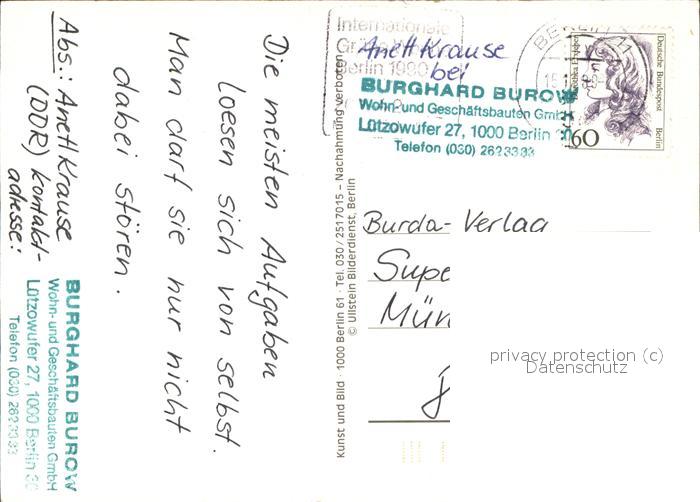 Die meisten Aufgaben
loesen sich von selbst.
Man darf sie nur nicht
dabei stören.
Abs.: Anett Krause
(DDR) Kontakt-
adresse:
BURGHARD BUROW
Wohn- und Geschäftsbauten GmbH
Lützowufer 27, 1000 Berlin 30
Telefon (030) 262 33 33
Kunst und Bild · 1000 Berlin 61 · Tel. 030 / 251 70 15 – Nachahmung verboten
© Ullstein Bilderdienst, Berlin
Internationale
Berlin 1990
Anett Krause
bei
BURGHARD BUROW
Wohn- und Geschäftsbauten GmbH
Lützowufer 27, 1000 Berlin 30
Telefon (030) 262 33 33
BERLIN 11
Deutsche Bundespost
Berlin
60
Burda- Verlag
Supe
Mün
privacy protection (c)
Datenschutz